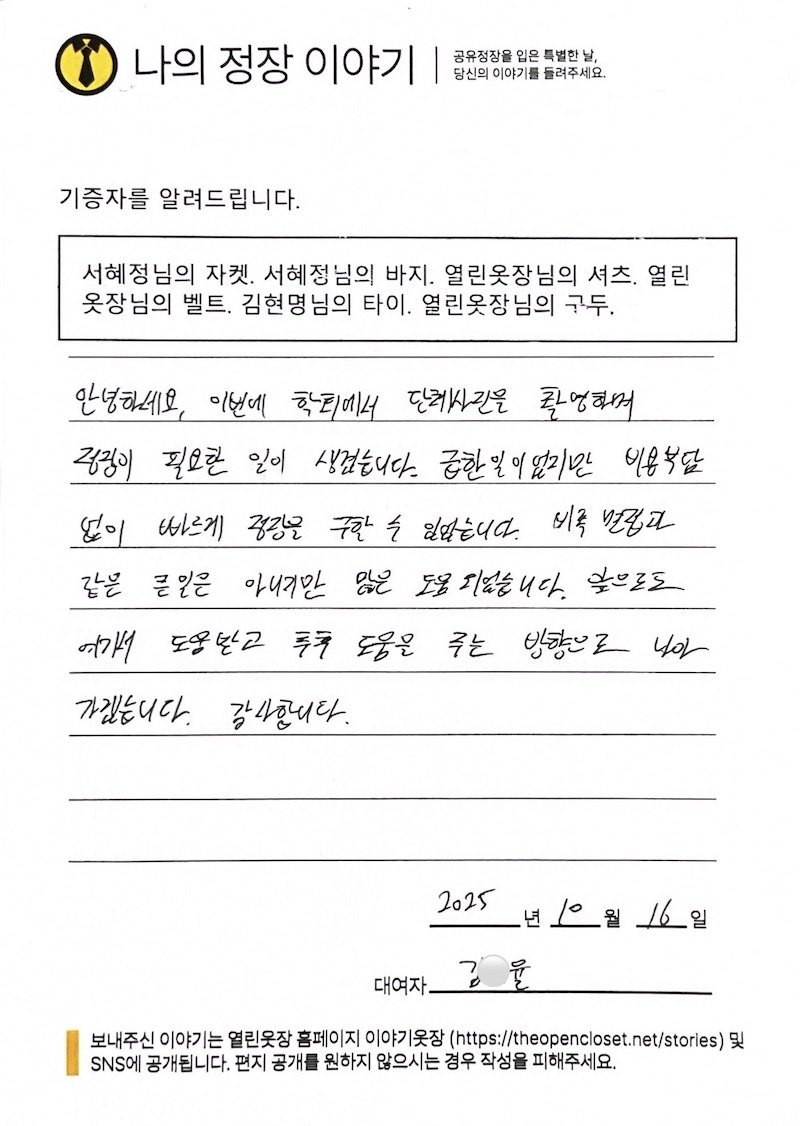 나의 정장 이야기
공유정장을 입은 특별한 날,
당신의 이야기를 들려주세요.
기증자를 알려드립니다.
서혜정님의 자켓. 서혜정님의 바지. 열린옷장님의 셔츠. 열린
옷장님의 벨트. 김현명님의 타이. 열린옷장님의 구두.
안녕하세요, 이번에 학회에서 단체사진을 촬영하며
정장이 필요한 일이 생겼습니다. 급한일이었지만 비용부담
없이 빠르게 정장을 구할 수 있었습니다. 비록 면접과
같은 큰일은 아니지만 많은 도움 되었습니다. 앞으로도
여기서 도움받고 추후 도움을 주는 방향으로 나아
가겠습니다. 감사합니다.
2025 년 10 월 16 일
대여자 김 윤
보내주신 이야기는 열린옷장 홈페이지 이야기옷장 (https://theopencloset.net/stories) 및
SNS에 공개됩니다. 편지 공개를 원하지 않으시는 경우 작성을 피해주세요.